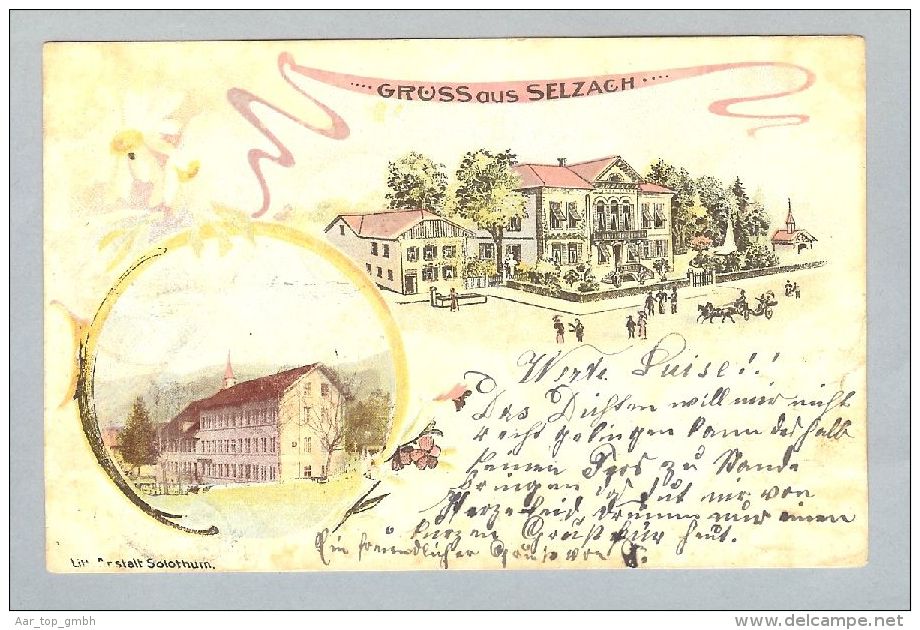 .... GRUSS aus SELZACH ....
Werte Luise!!
Das Dichten will mir nicht
recht gelingen kann deshalb
keinen Vers zu Stande
bringen es tut mir von
Herzeleid drumm nur einen
kurzen Gruß für heut.
Ein freundlicher Gruss von
Lith. Anstalt Solothurn.
Aar_top_gmbh
www.delcampe.net